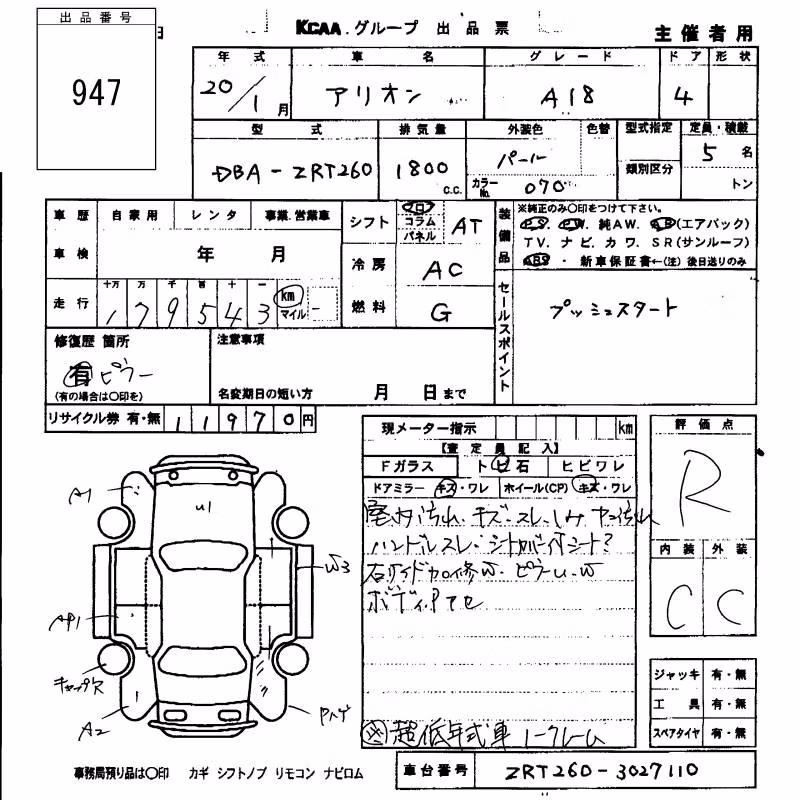 出品番号
947
KCAA.グループ 出品票
主催者用
年式 車名 グレード ドア 形状
20/1月 アリオン A18 4
型式 排気量 外装色 色替 型式指定 定員・積載
DBA-ZRT260 1800 C.C. パール 類別区分 5名
カラーNo. 070 トン
車歴 自家用 レンタ 事業.営業車
シフト フロ コラム パネル AT
装備品 ※純正のみ〇印をつけて下さい。
PS. PW. 純AW. AB(エアバック)
TV. ナビ. カワ. SR(サンルーフ)
ABS ・ 新車保証書←(注) 後日送りのみ
車検 年 月
冷房 AC
走行 十万 万 千 百 十 一
179543 km マイル
燃料 G
セールスポイント プッシュスタート
修復歴 箇所
有 ピラー
(有の場合は〇印を)
注意事項
名変期日の短い方 月 日まで
リサイクル券 有・無 11970円
現メーター指示 km
【査定員記入】
Fガラス トビ石 ヒビワレ
ドアミラー キズ・ワレ ホイール(CP) キズ・ワレ
室内汚れ、キズ・スレ、シミ
ハンドルスレ
ボディ
超低年式車 ノークレーム
評価点
R
内装 外装
C C
A1
U1
W3
AP1
キャップ欠
A2
Pハゲ
ジャッキ 有・無
工具 有・無
スペアタイヤ 有・無
事務局預り品は〇印 カギ シフトノブ リモコン ナビロム
車台番号 ZRT260-3027110